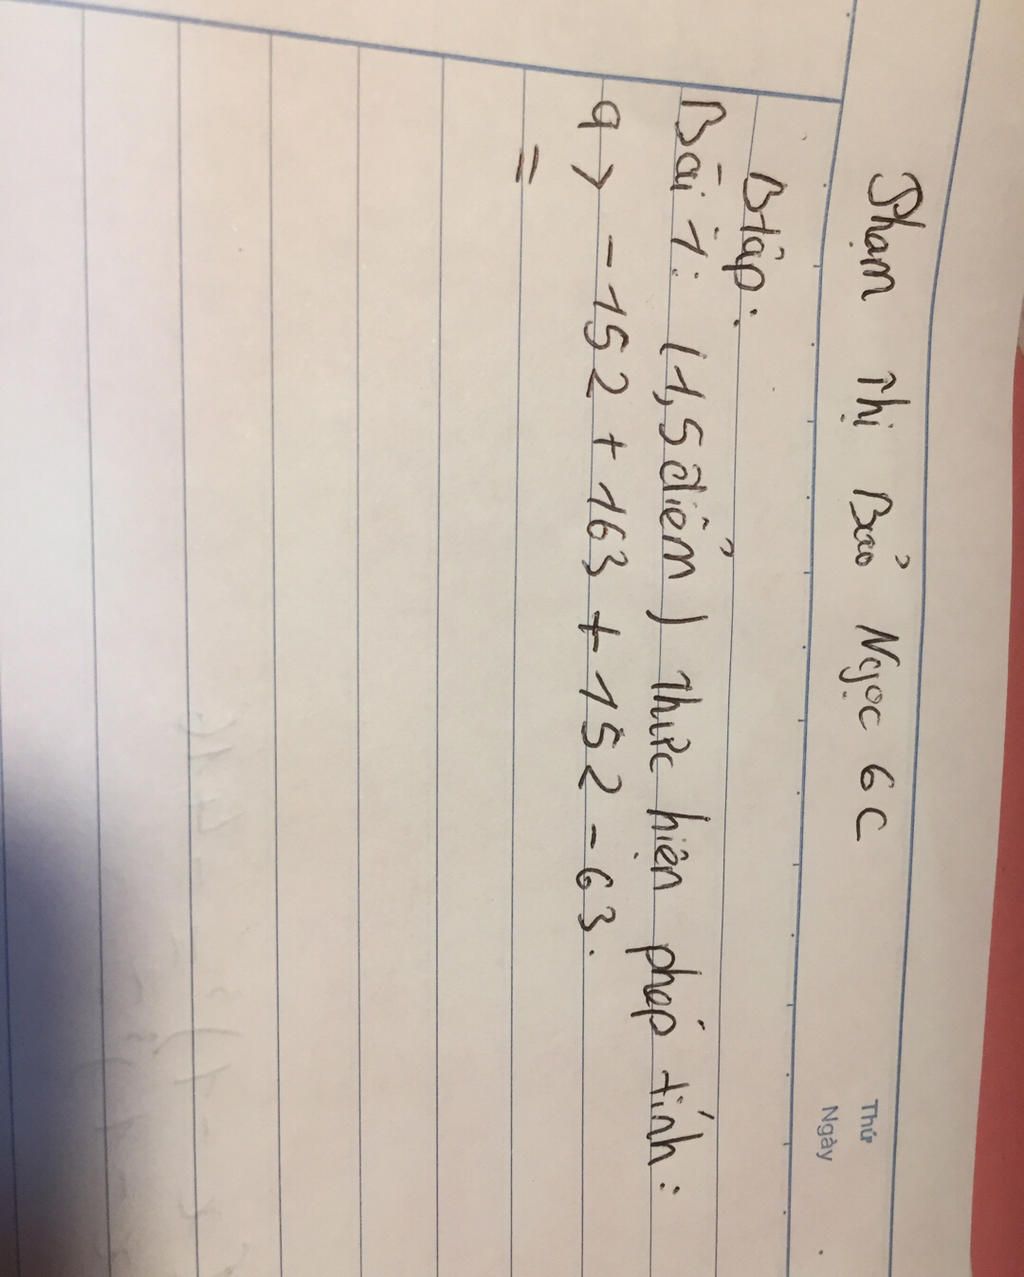 Phạm Thị Bảo Ngọc 6C
Thứ
Ngày
Btập:
Bài 1: (1,5 điểm) Thực hiện phép tính:
a> -152 + 163 + 152 - 63.
=